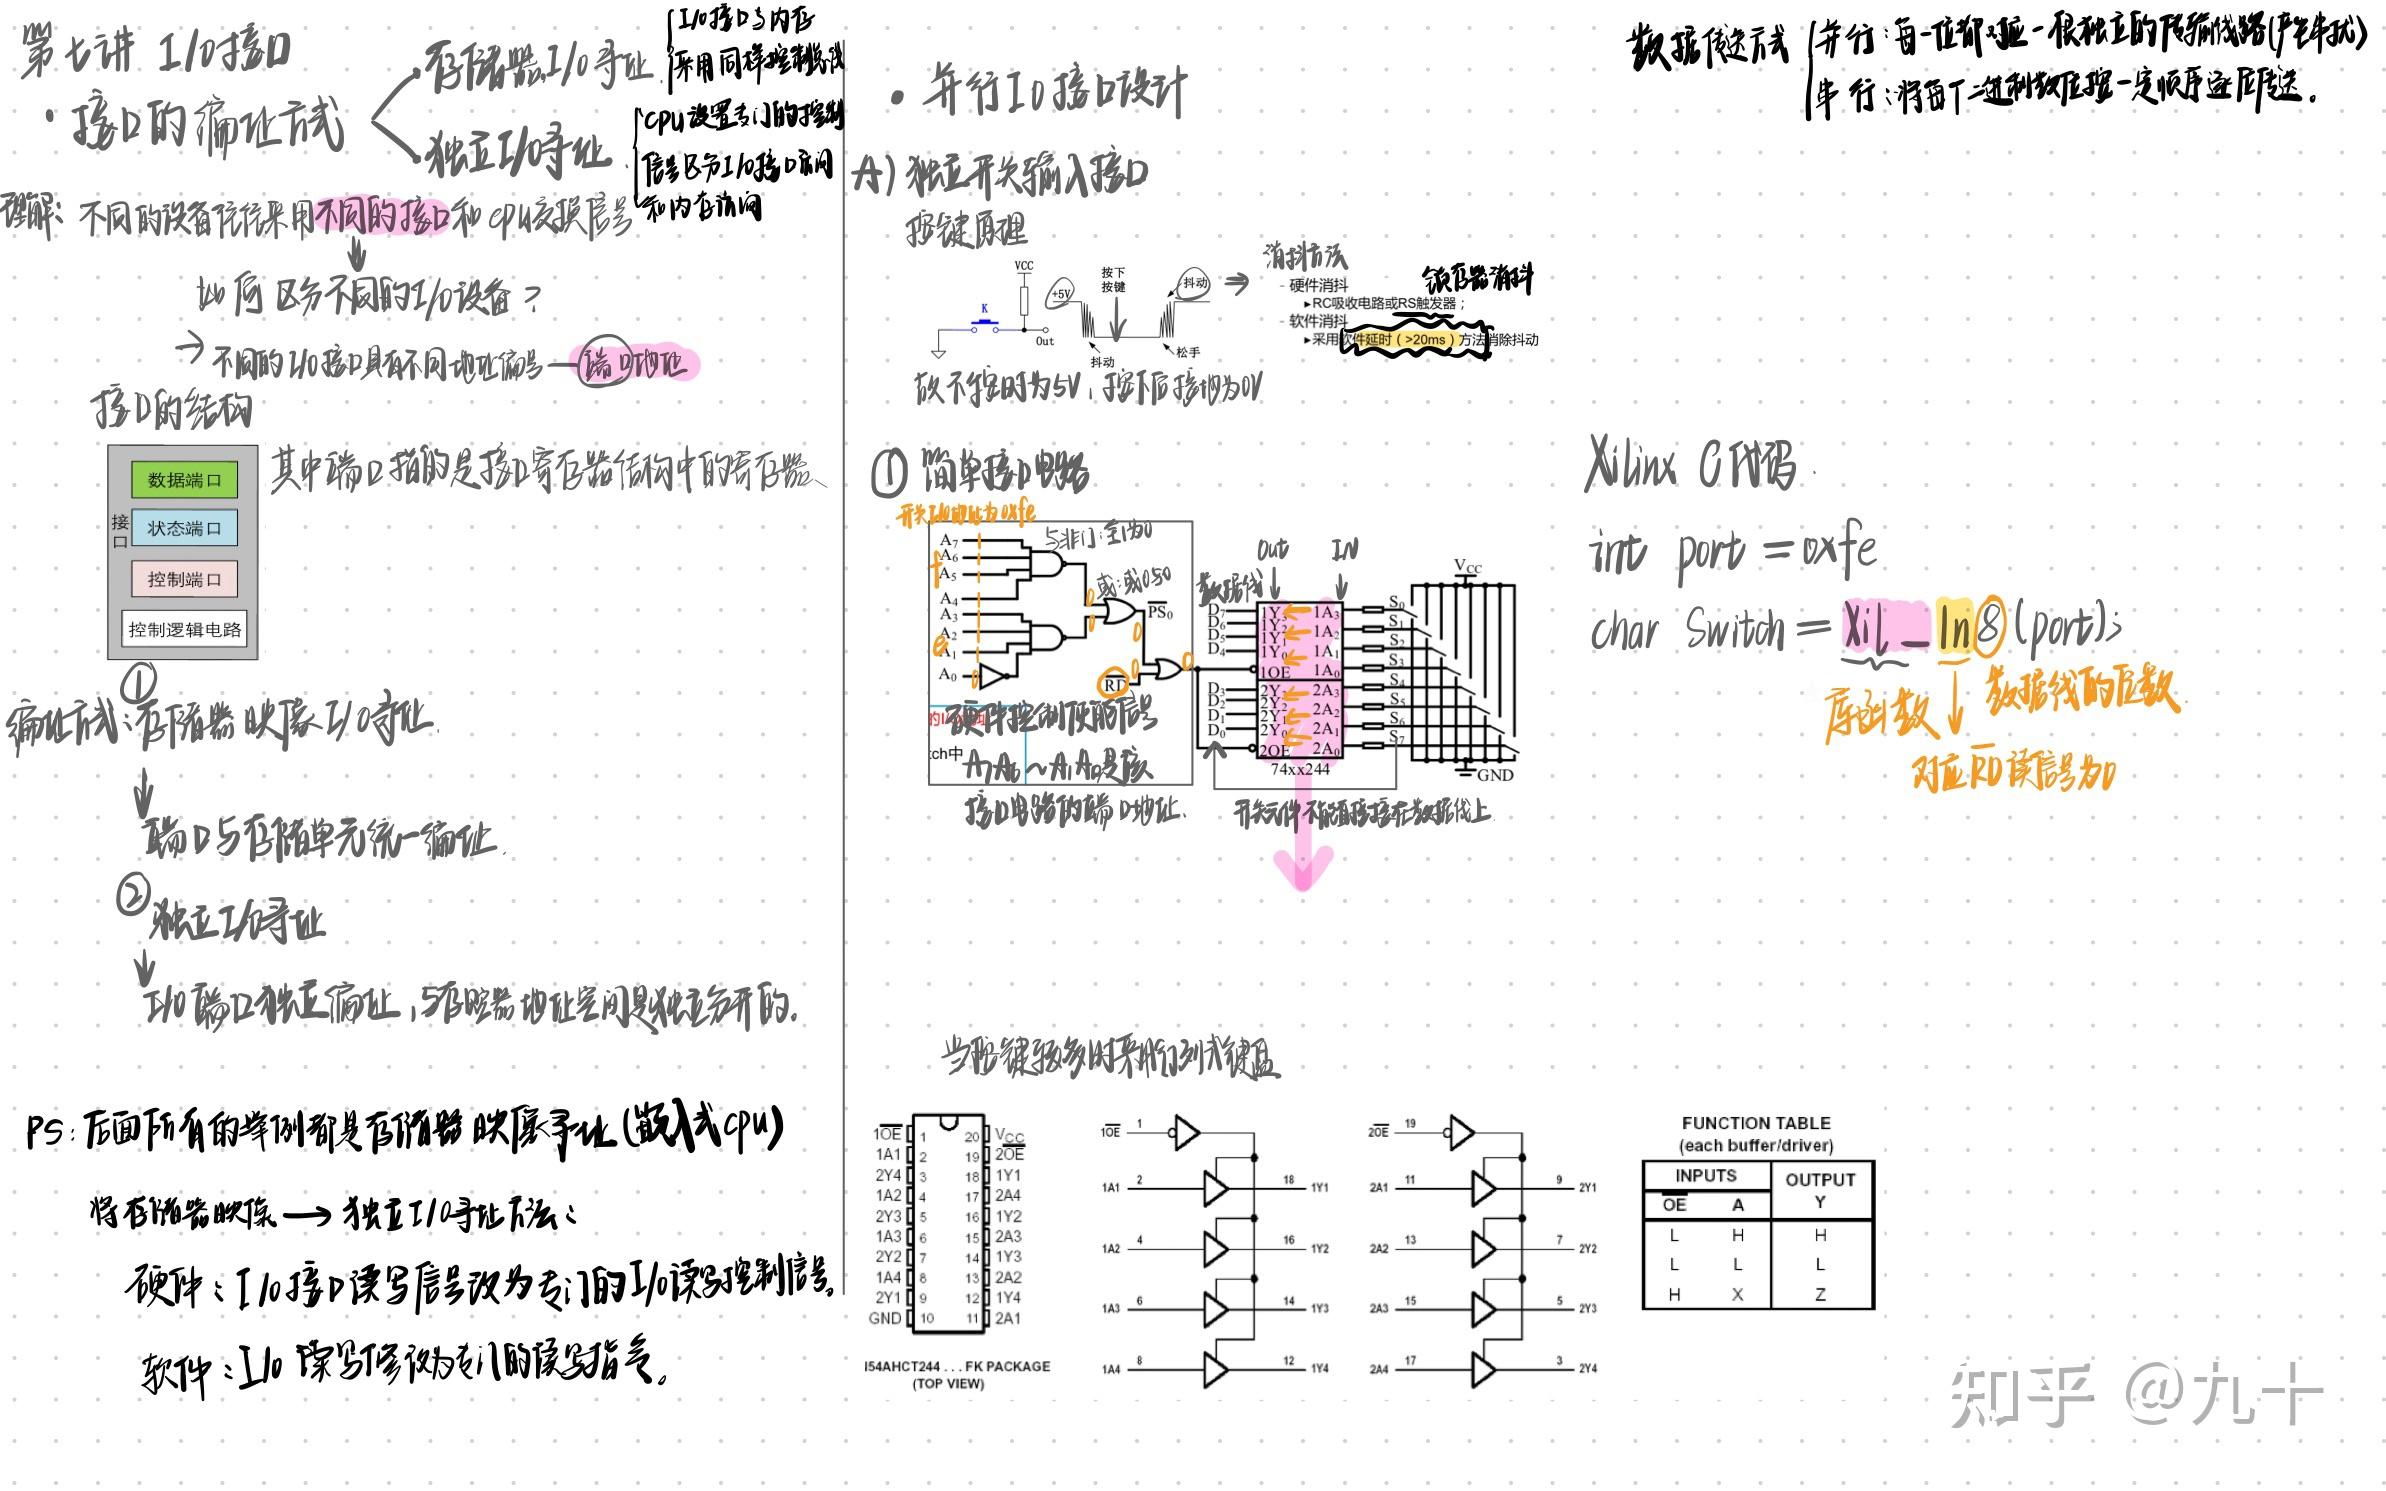 第七讲 I/O接口
· 接口的编址方式
存储器I/O寻址
I/O接口与内存
采用同样控制总线
独立I/O寻址
CPU设置专门的控制
信号区分I/O接口访问
和内存访问
理解：不同的设备往往采用不同的接口和cpu交换信号
如何区分不同的I/O设备？
→ 不同的I/O接口具有不同地址编号—端口地址
接口的结构
接口
数据端口
状态端口
控制端口
控制逻辑电路
其中端口指的是接口寄存器结构中的寄存器、
编址方式：①存储器映象I/O寻址.
端口与存储单元统一编址.
② 独立I/O寻址
I/O端口独立编址，与存储器地址空间是独立分开的。
PS：后面所有的举例都是存储器映像寻址(嵌入式cpu)
将存储器映像→独立I/O寻址方法：
硬件：I/O接口读写信号改为专门的I/O读写控制信号。
软件：I/O读写修改为专门的读写指令。
· 并行IO接口设计
A) 独立开关输入接口
按键原理
VCC
K
Out
+5V
按下
按键
抖动
抖动
松手
消抖方法
锁存器消抖
- 硬件消抖
▸RC吸收电路或RS触发器；
- 软件消抖
▸采用软件延时（>20ms）方法消除抖动
故不按时为5V，按下后接地为0V
① 简单接口电路
开关I/O地址为0xfe
与非门：全1为0
或：或0.50
A7
A6
A5
A4
A3
A2
A1
A0
f
e
0
PS0
RD
的I/O
tch中
硬件控制使能信号
A7A6～A1A0是该
接口电路的端口地址.
数据线
Out
IN
D7
D6
D5
D4
D3
D2
D1
D0
1Y3 1A3
1Y2 1A2
1Y1 1A1
1Y0 1A0
1OE
2Y3 2A3
2Y2 2A2
2Y1 2A1
2Y0 2A0
2OE
74xx244
S0
S1
S2
S3
S4
S5
S6
S7
VCC
GND
开关元件不能直接接在数据线上
当按键较多时采用行列式键盘
1OE 1 20 VCC
1A1 2 19 2OE
2Y4 3 18 1Y1
1A2 4 17 2A4
2Y3 5 16 1Y2
1A3 6 15 2A3
2Y2 7 14 1Y3
1A4 8 13 2A2
2Y1 9 12 1Y4
GND 10 11 2A1
I54AHCT244 . . . FK PACKAGE
(TOP VIEW)
1OE 1
1A1 2 18 1Y1
1A2 4 16 1Y2
1A3 6 14 1Y3
1A4 8 12 1Y4
2OE 19
2A1 11 9 2Y1
2A2 13 7 2Y2
2A3 15 5 2Y3
2A4 17 3 2Y4
FUNCTION TABLE
(each buffer/driver)
INPUTS OUTPUT
OE A Y
L H H
L L L
H X Z
数据传送方式
并行：每一位都对应一根独立的传输线路(产生串扰)
串行：将每个二进制数位按一定顺序逐位传送。
Xilinx C代码.
int port = 0xfe
char Switch = Xil_In8(port);
库函数
数据线的位数.
对应RD读信号为0
知乎 @九十